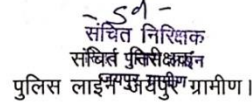 -Sd-
संचित निरिक्षक
संचित निरीक्षक
पुलिस लाईन जयपुर ग्रामीण।